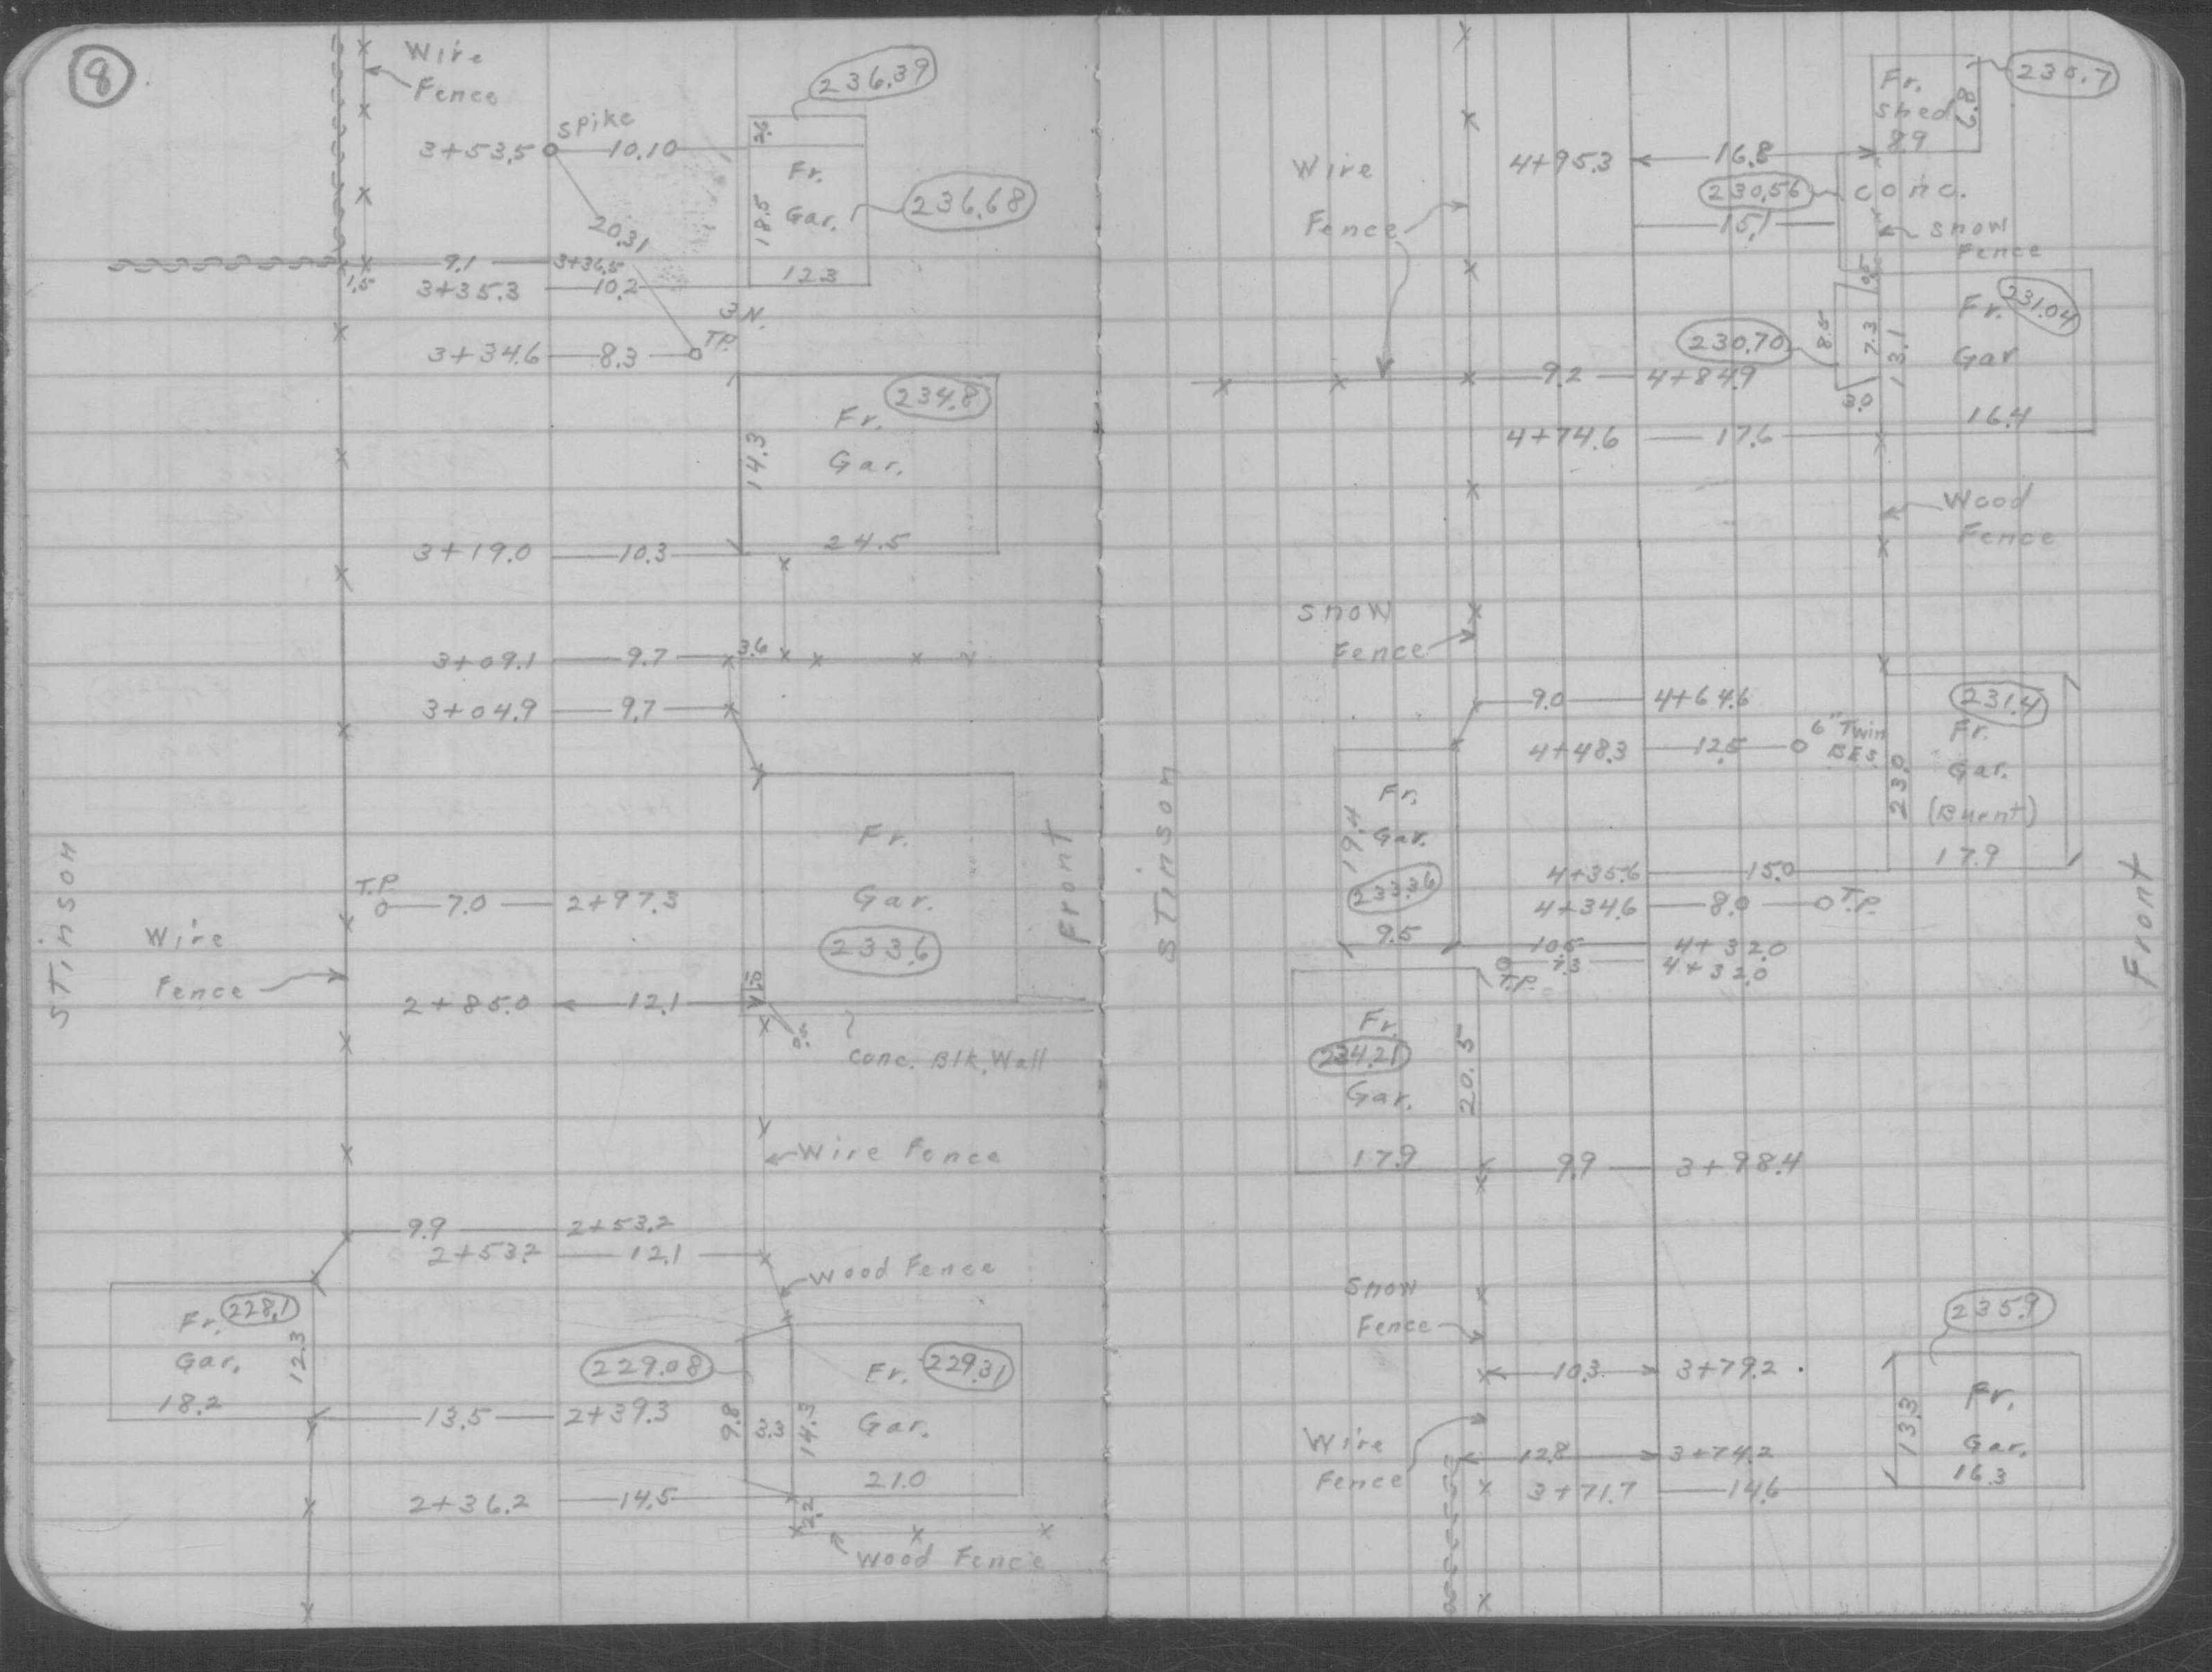 8
Wire
Fence
236.39
spike
3+53.5 10.10
2.6
Fr.
Gar.
18.5
236.68
12.3
20.31
9.1 3+36.5
1.5
3+35.3 10.2
3 N.
T.P.
3+34.6 8.3
234.8
Fr.
Gar.
14.3
24.5
3+19.0 10.3
3+09.1 9.7 3.6
3+04.9 9.7
Fr.
Gar.
233.6
Front
STinson
T.P.
7.0 2+97.3
Wire
Fence
2+85.0 12.1
0.5
Conc. Blk. Wall
Wire Fence
9.9 2+53.2
2+53.2 12.1
Wood Fence
Fr. 228.1
Gar.
12.3
18.2
229.08
Fr. 229.31
Gar.
9.8 3.3 14.3
21.0
13.5 2+39.3
2+36.2 14.5
2.2
Wood Fence
230.7
Fr.
Shed
8.9
Wire
Fence
4+95.3 16.8
230.56
conc.
15.1
snow
Fence
0.5
Fr. 231.04
Gar
230.70
8.5 7.3 13.1
3.0
16.4
9.2 4+84.9
4+74.6 17.6
Wood
Fence
snow
Fence
9.0 4+64.6
231.4
Fr.
Gar.
(Burnt)
23.0
17.9
4+48.3 12.5
6" Twin
B.E.S.
Fr.
Gar.
19.4
233.36
9.5
4+35.6 15.0
4+34.6 8.0 T.P.
10.5 4+32.0
7.3 4+32.0
T.P.
STinson
Front
Fr.
234.21
Gar.
20.5
17.9
9.9 3+98.4
Snow
Fence
235.9
10.3 3+79.2
Fr.
Gar.
13.3
16.3
Wire
Fence
12.8 3+74.2
3+71.7 14.6